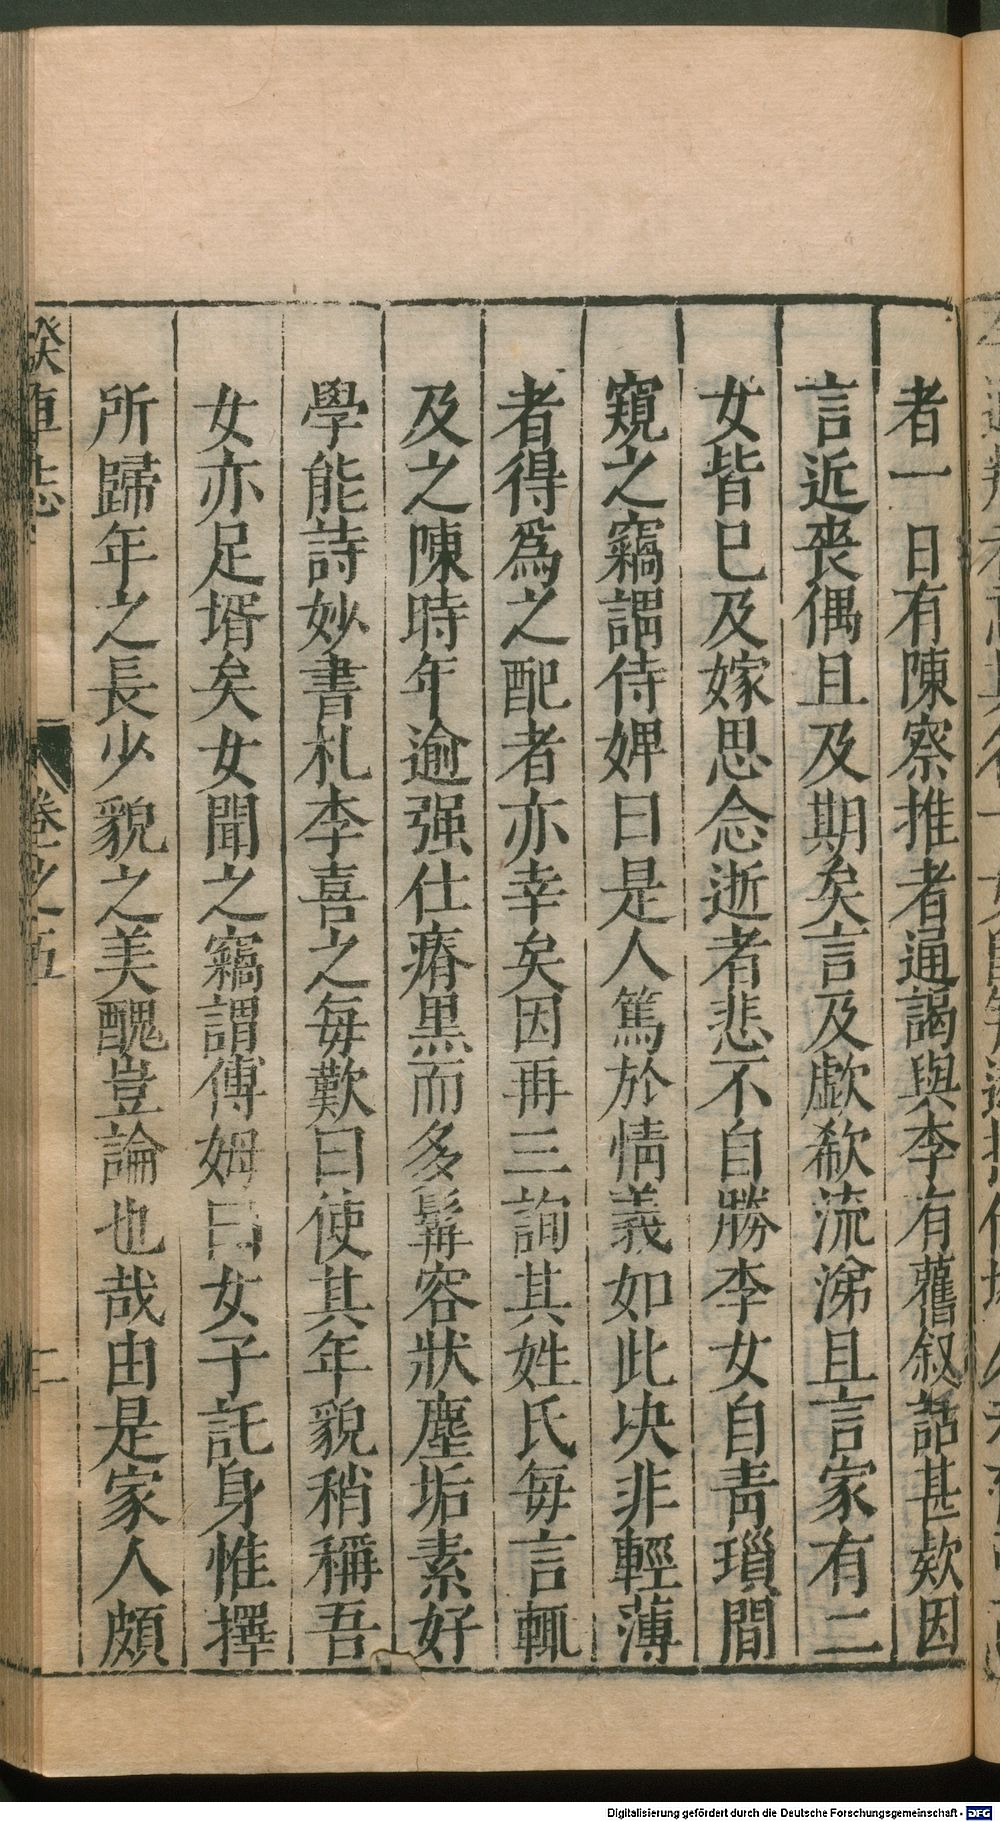 者一日有陳察推者通謁與李有舊叙話甚欵因
言近喪偶且及期矣言及歔欷流涕且言家有二
女皆已及嫁思念逝者悲不自勝李女自青瑣間
窺之竊謂侍婢曰是人篤於情義如此决非輕薄
者得爲之配者亦幸矣因再三詢其姓氏每言輒
及之陳時年逾强仕瘠黒而多髯容狀塵垢素好
學能詩妙書札李喜之每歎曰使其年貌稍稱吾
女亦足壻矣女聞之竊謂傅姆曰女子託身惟擇
所歸年之長少貌之美醜豈論也哉由是家人頗
睽車志 卷之五 二
Digitalisierung gefördert durch die Deutsche Forschungsgemeinschaft - DFG